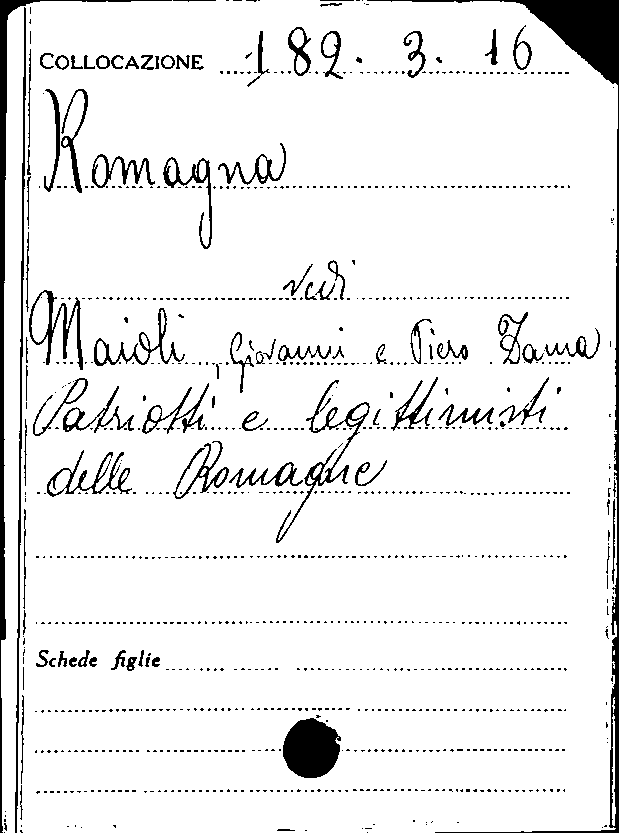 COLLOCAZIONE 182. 3. 16
Romagna
vedi
Maioli, Giovanni e Piero Zama
Patriotti e legittimisti
delle Romagne
Schede figlie